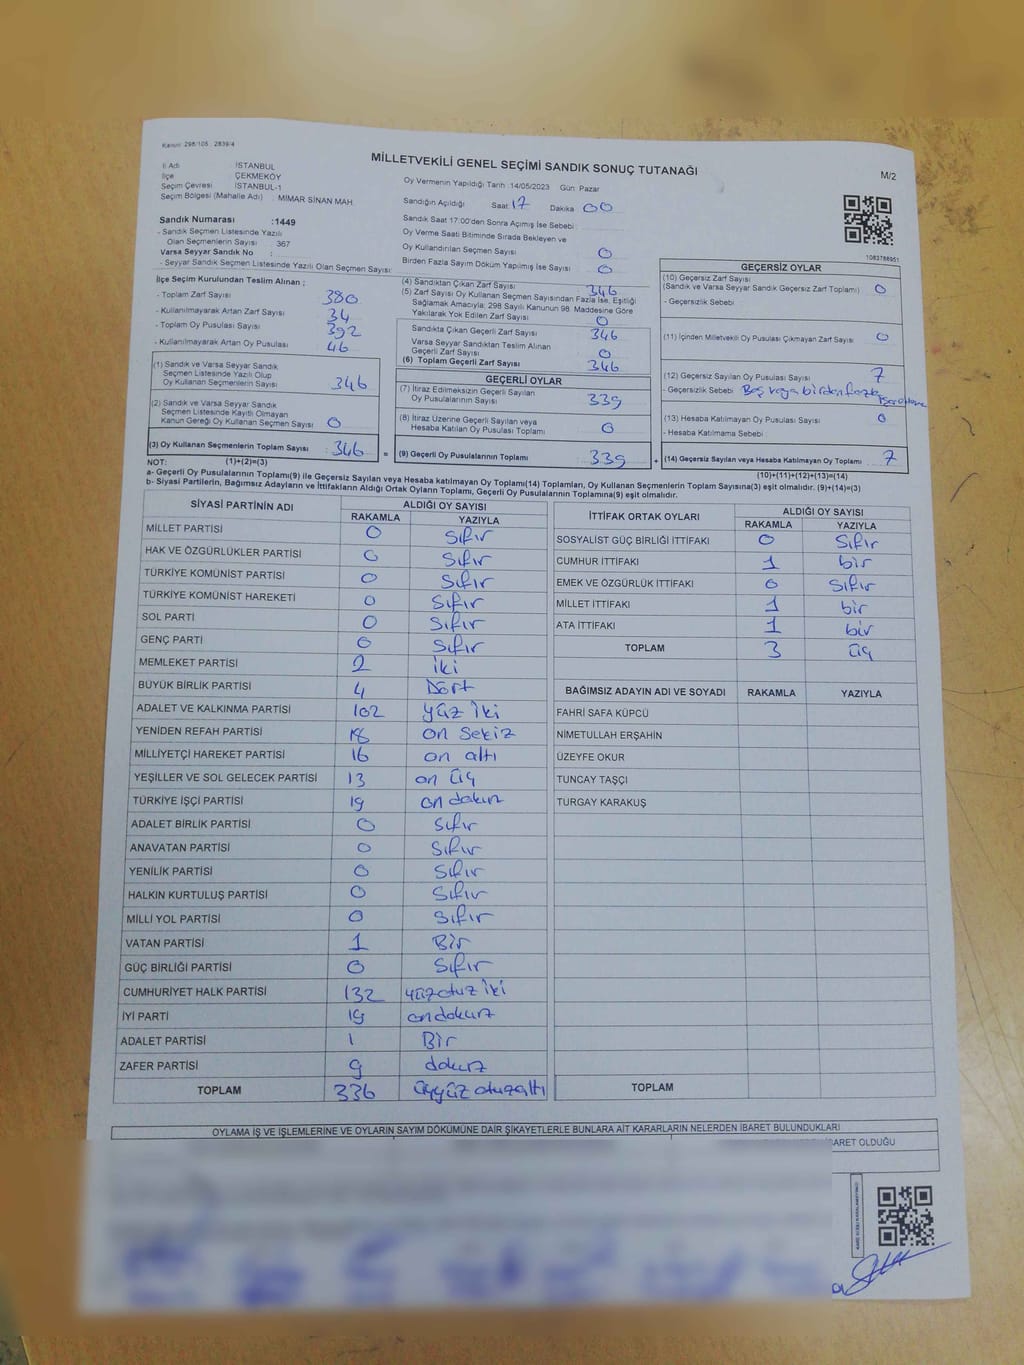 Kanun: 298/105 2839/4
MİLLETVEKİLİ GENEL SEÇİMİ SANDIK SONUÇ TUTANAĞI
M/2
İl Adı İSTANBUL
İlçe ÇEKMEKÖY
Seçim Çevresi İSTANBUL-1
Seçim Bölgesi (Mahalle Adı) : MİMAR SİNAN MAH.
Oy Vermenin Yapıldığı Tarih 14/05/2023 Gün Pazar
Sandığın Açıldığı Saat 17 Dakika 00
Sandık Saat 17:00'den Sonra Açılmış İse Sebebi :
Oy Verme Saati Bitiminde Sırada Bekleyen ve
Oy Kullandırılan Seçmen Sayısı 0
Birden Fazla Sayım Döküm Yapılmış İse Sayısı 0
1083788951
Sandık Numarası :1449
- Sandık Seçmen Listesinde Yazılı
Olan Seçmenlerin Sayısı : 367
Varsa Seyyar Sandık No :
- Seyyar Sandık Seçmen Listesinde Yazılı Olan Seçmen Sayısı:
İlçe Seçim Kurulundan Teslim Alınan ;
- Toplam Zarf Sayısı 380
- Kullanılmayarak Artan Zarf Sayısı 34
- Toplam Oy Pusulası Sayısı 392
- Kullanılmayarak Artan Oy Pusulası 46
(1) Sandık ve Varsa Seyyar Sandık
Seçmen Listesinde Yazılı Olup
Oy Kullanan Seçmenlerin Sayısı 346
(2) Sandık ve Varsa Seyyar Sandık
Seçmen Listesinde Kayıtlı Olmayan
Kanun Gereği Oy Kullanan Seçmenler 0
(3) Oy Kullanan Seçmenlerin Toplam Sayısı : 346
(1)+(2)=(3)
(4) Sandıktan Çıkan Zarf Sayısı 346
(5) Zarf Sayısı Oy Kullanan Seçmen Sayısından Fazla İse, Eşitliği
Sağlamak Amacıyla; 298 Sayılı Kanunun 98. Maddesine Göre
Yakılarak Yok Edilen Zarf Sayısı 0
Sandıkta Çıkan Geçerli Zarf Sayısı 346
Varsa Seyyar Sandıktan Teslim Alınan
Geçerli Zarf Sayısı 0
(6) Toplam Geçerli Zarf Sayısı 346
GEÇERLİ OYLAR
(7) İtiraz Edilmeksizin Geçerli Sayılan
Oy Pusulalarının Sayısı 339
(8) İtiraz Üzerine Geçerli Sayılan veya
Hesaba Katılan Oy Pusulası Toplamı 0
= (9) Geçerli Oy Pusulalarının Toplamı 339 +
GEÇERSİZ OYLAR
(10) Geçersiz Zarf Sayısı
(Sandık ve Varsa Seyyar Sandık Geçersiz Zarf Toplamı) 0
- Geçersizlik Sebebi
(11) İçinden Milletvekili Oy Pusulası Çıkmayan Zarf Sayısı 0
(12) Geçersiz Sayılan Oy Pusulası Sayısı 7
- Geçersizlik Sebebi Boş veya birden fazla
(13) Hesaba Katılmayan Oy Pusulası Sayısı 0
- Hesaba Katılmama Sebebi
(14) Geçersiz Sayılan veya Hesaba Katılmayan Oy Toplamı 7
(10)+(11)+(12)+(13)=(14)
NOT:
a- Geçerli Oy Pusulalarının Toplamı(9) ile Geçersiz Sayılan veya Hesaba katılmayan Oy Toplamı(14) Toplamları, Oy Kullanan Seçmenlerin Toplam Sayısına(3) eşit olmalıdır. (9)+(14)=(3)
b- Siyasi Partilerin, Bağımsız Adayların ve İttifakların Aldığı Ortak Oyların Toplamı, Geçerli Oy Pusulalarının Toplamına(9) eşit olmalıdır.
SİYASİ PARTİNİN ADI ALDIĞI OY SAYISI
RAKAMLA YAZIYLA
MİLLET PARTİSİ 0 Sıfır
HAK VE ÖZGÜRLÜKLER PARTİSİ 0 Sıfır
TÜRKİYE KOMÜNİST PARTİSİ 0 Sıfır
TÜRKİYE KOMÜNİST HAREKETİ 0 Sıfır
SOL PARTİ 0 Sıfır
GENÇ PARTİ 0 Sıfır
MEMLEKET PARTİSİ 2 iki
BÜYÜK BİRLİK PARTİSİ 4 Dört
ADALET VE KALKINMA PARTİSİ 102 yüz iki
YENİDEN REFAH PARTİSİ 18 on sekiz
MİLLİYETÇİ HAREKET PARTİSİ 16 on altı
YEŞİLLER VE SOL GELECEK PARTİSİ 13 on üç
TÜRKİYE İŞÇİ PARTİSİ 19 on dokuz
ADALET BİRLİK PARTİSİ 0 Sıfır
ANAVATAN PARTİSİ 0 Sıfır
YENİLİK PARTİSİ 0 Sıfır
HALKIN KURTULUŞ PARTİSİ 0 Sıfır
MİLLİ YOL PARTİSİ 0 Sıfır
VATAN PARTİSİ 1 Bir
GÜÇ BİRLİĞİ PARTİSİ 0 Sıfır
CUMHURİYET HALK PARTİSİ 132 yüzotuz iki
İYİ PARTİ 19 ondokuz
ADALET PARTİSİ 1 Bir
ZAFER PARTİSİ 9 dokuz
TOPLAM 336 üçyüz otuzaltı
İTTİFAK ORTAK OYLARI ALDIĞI OY SAYISI
RAKAMLA YAZIYLA
SOSYALİST GÜÇ BİRLİĞİ İTTİFAKI 0 Sıfır
CUMHUR İTTİFAKI 1 bir
EMEK VE ÖZGÜRLÜK İTTİFAKI 0 Sıfır
MİLLET İTTİFAKI 1 bir
ATA İTTİFAKI 1 bir
TOPLAM 3 üç
BAĞIMSIZ ADAYIN ADI VE SOYADI RAKAMLA YAZIYLA
FAHRİ SAFA KÜPCÜ
NİMETULLAH ERŞAHİN
ÜZEYFE OKUR
TUNCAY TAŞÇI
TURGAY KARAKUŞ
TOPLAM
OYLAMA İŞ VE İŞLEMLERİNE VE OYLARIN SAYIM DÖKÜMÜNE DAİR ŞİKAYETLERLE BUNLARA AİT KARARLARIN NELERDEN İBARET BULUNDUKLARI
OLDUĞU